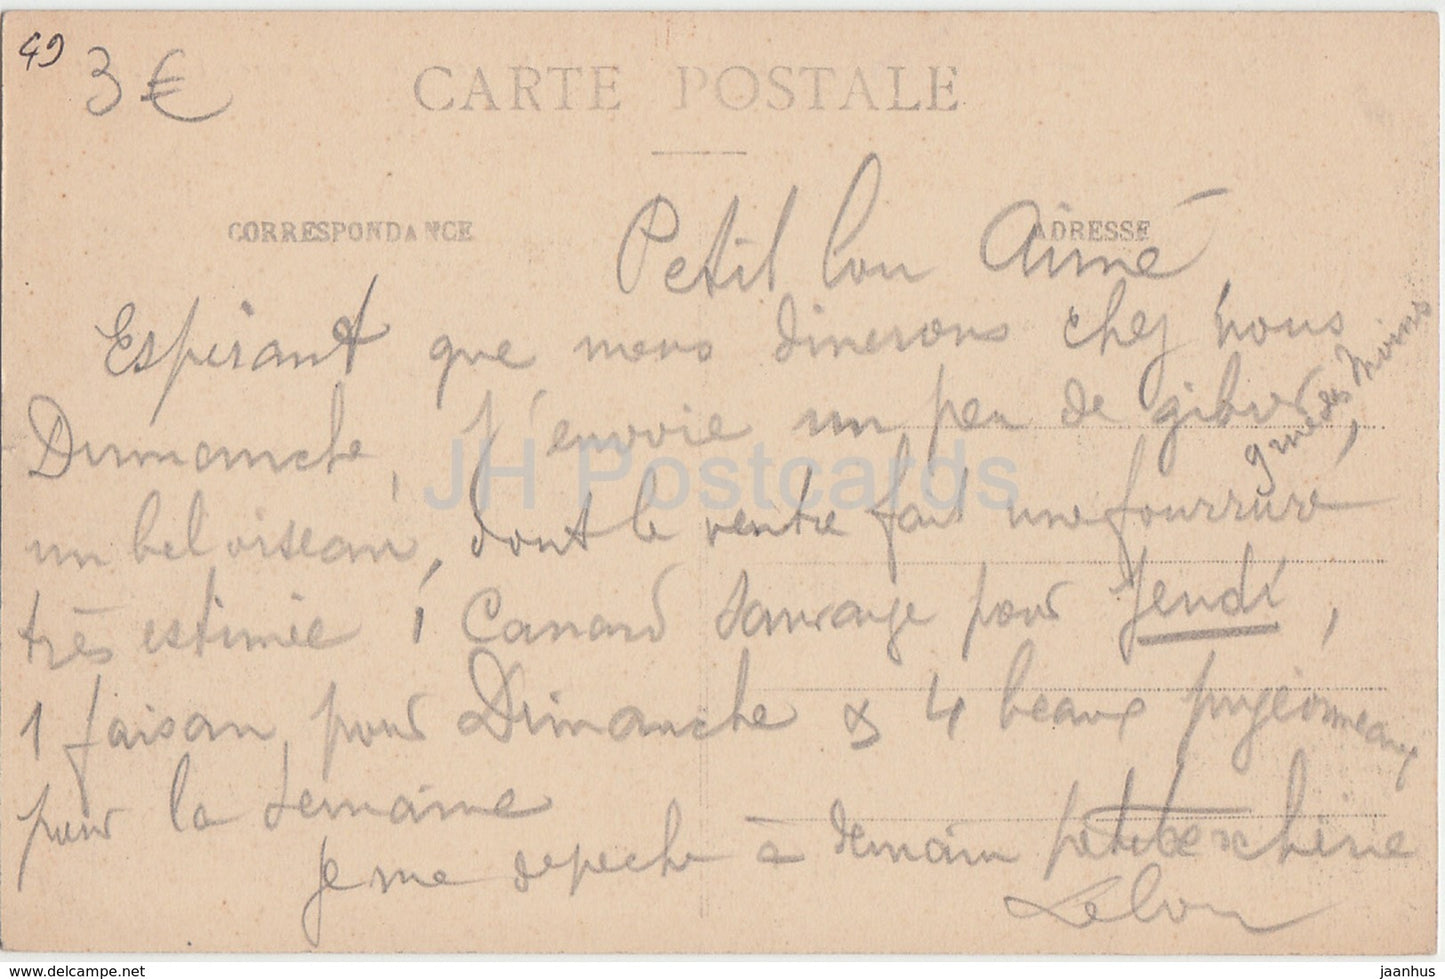 49
3 €
CARTE POSTALE
CORRESPONDANCE
ADRESSE
Petit lou Aimé,
Espérant que nous dinerons chez nous
Dimanche, j'envoie un peu de gibier,
un bel oiseau, dont le ventre fait une fourrure
très estimée 1 Canard sauvage pour Jeudi,
1 faisan, pour Dimanche & 4 beaux pigeonneaux
pour la semaine
Je me depeche à demain petite chérie
Lelou
JH Postcards
delcampe.net
jaanhus